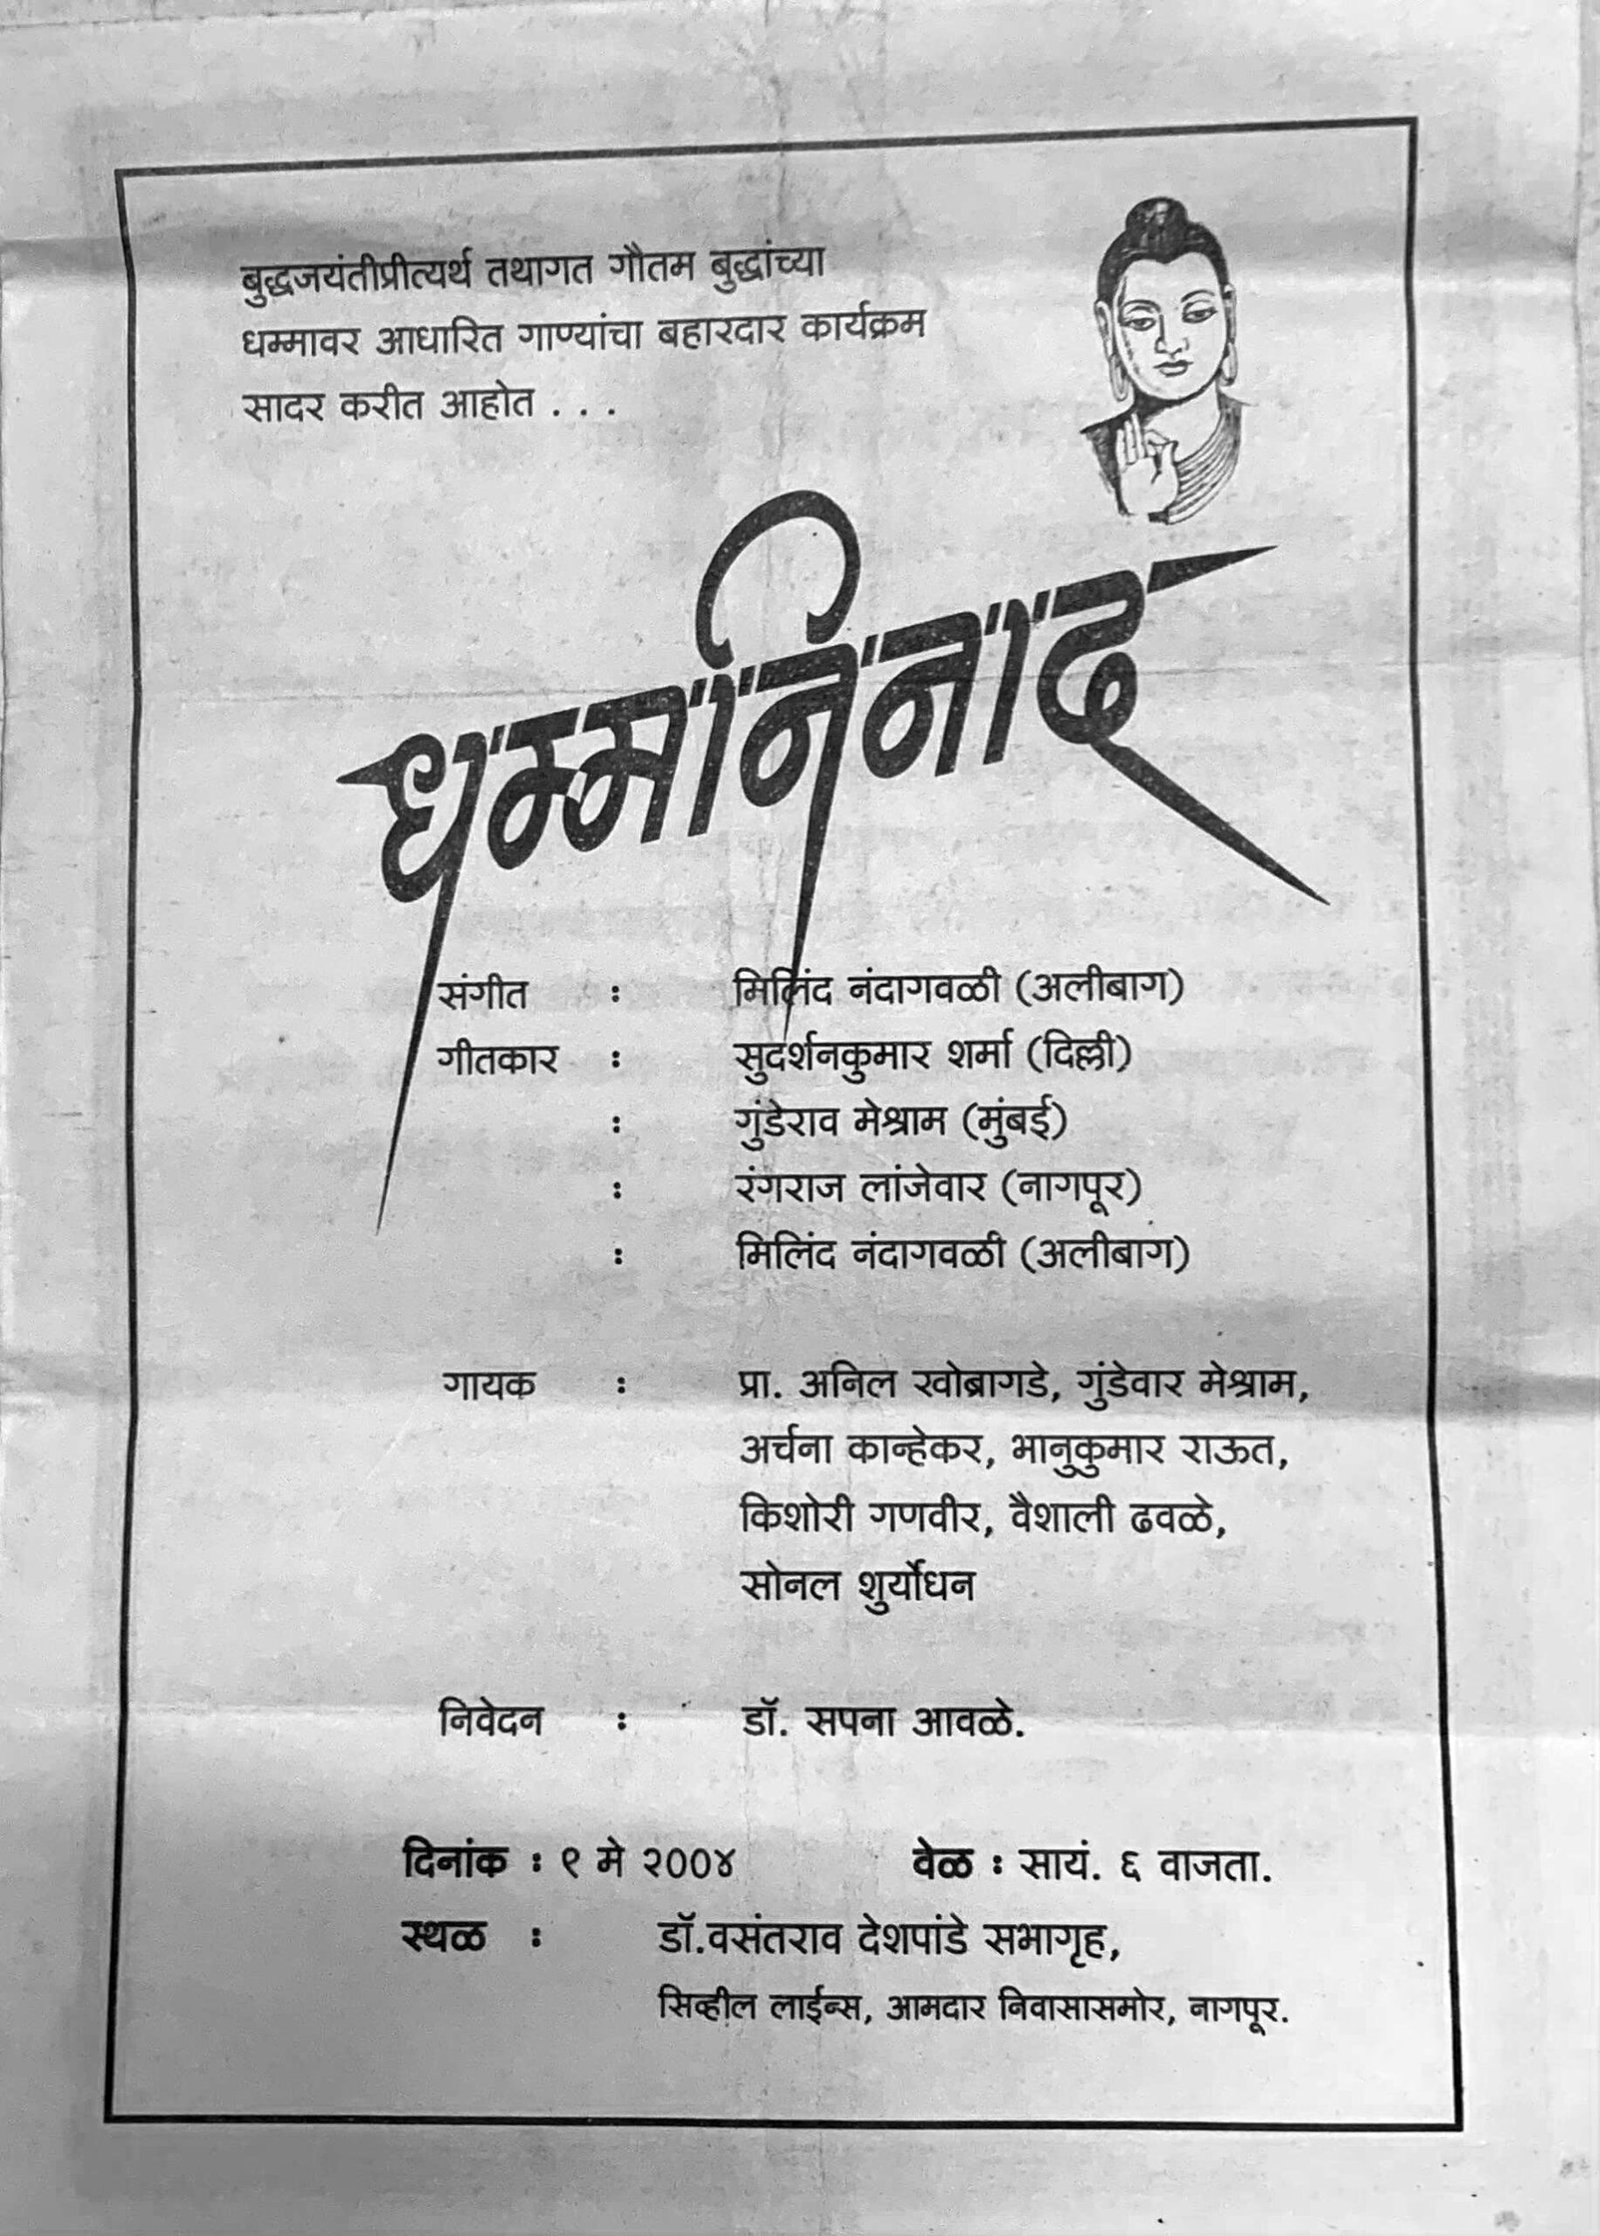 बुद्धजयंतीप्रीत्यर्थ तथागत गौतम बुद्धांच्या
धम्मावर आधारित गाण्यांचा बहारदार कार्यक्रम
सादर करीत आहोत . . .
धम्मनिनाद
संगीत : मिलिंद नंदागवळी (अलीबाग)
गीतकार : सुदर्शनकुमार शर्मा (दिल्ली)
: गुंडेराव मेश्राम (मुंबई)
: रंगराज लांजेवार (नागपूर)
: मिलिंद नंदागवळी (अलीबाग)
गायक : प्रा. अनिल खोब्रागडे, गुंडेवार मेश्राम,
अर्चना कान्हेकर, भानुकुमार राऊत,
किशोरी गणवीर, वैशाली ढवळे,
सोनल शुर्योधन
निवेदन : डॉ. सपना आवळे.
दिनांक : ९ मे २००४ वेळ : सायं. ६ वाजता.
स्थळ : डॉ.वसंतराव देशपांडे सभागृह,
सिव्हील लाईन्स, आमदार निवासासमोर, नागपूर.